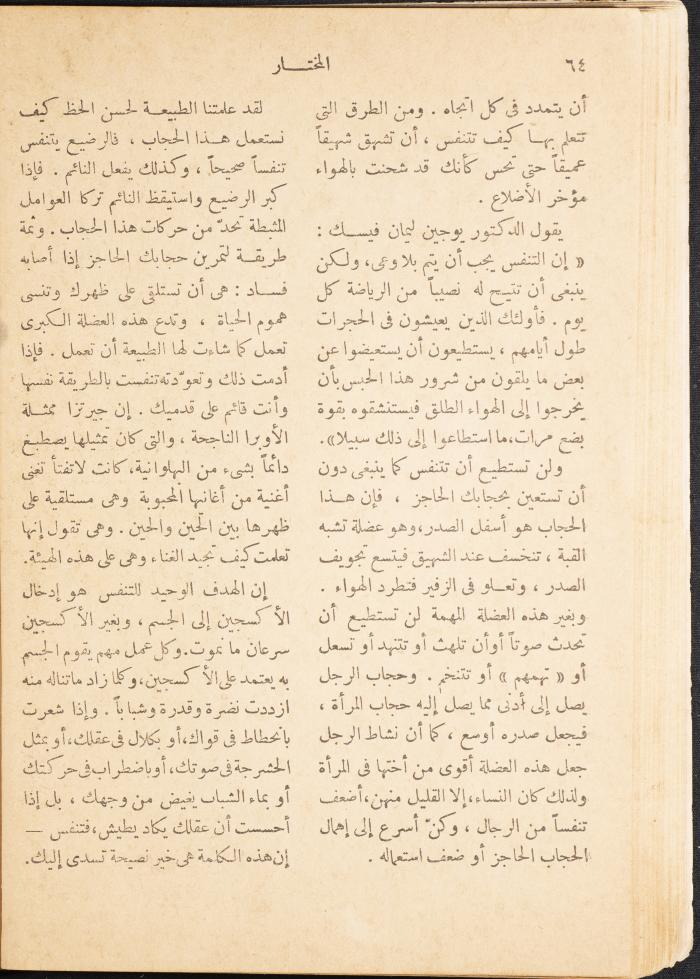 ٦٤
المختـــار
أن يتمدد فى كل اتجاه . ومن الطرق التى
تتعلم بهـا كيف تتنفس ، أن تشهق شهيقاً
عميقاً حتى تحس كأنك قد شحنت بالهواء
مؤخر الأضلاع .
يقول الدكتور يوجين ليمان فيسـك :
« إن التنفس يجب أن يتم بلا وعى، ولـكن
ينبغى أن تتيـح له نصيباً من الرياضة كل
يوم . فأولئك الذين يعيشون فى الحجرات
طول أيامهم ، يستطيعون أن يستعيضوا عن
بعض ما يلقون من شرور هذا الحبس بأن
يخرجوا إلى الهواء الطلق فيستنشقوه بقوة
بضع مرات، ما استطاعوا إلى ذلك سبيلا».
ولن تستطيـع أن تتنفس كما ينبغى دون
أن تستعين بحجابك الحاجز ، فإن هـذا
الحجاب هو أسفل الصدر، وهو عضلة تشبه
القبة ، تنخسف عند الشهيق فيتسع تجويف
الصدر ، وتعـلو فى الزفير فتطرد الهواء .
وبغير هذه العضلة المهمة لن تستطيع أن
تحدث صوتاً أو أن تلهث أو تتنهد أو تسعل
أو « تهمهم » أو تتنخم . وحجاب الرجل
يصل إلى أدنى مما يصل إليه حجاب المرأة ،
فيجعل صدره أوسع ، كما أن نشاط الرجل
جعل هذه العضلة أقوى من أختها فى المرأة
ولذلك كان النساء، إلا القليل منهن، أضعف
تنفساً من الرجال ، وكنّ أسرع إلى إهمال
الحجاب الحاجز أو ضعف استعماله .
لقد علمتنا الطبيعـة لحسن الحظ كيف
نستعمل هـذا الحجاب ، فالرضيع يتنفس
تنفساً صحيحاً ، وكذلك يفعل النائم . فإذا
كبر الرضيع واستيقظ النائم تركا العوامل
المثبطة تحدّ من حركات هذا الحجاب . وثمة
طريقـة لتمرين حجابك الحاجز إذا أصابه
فسـاد : هى أن تستلقى على ظهرك وتنسى
هموم الحياة ، وتدع هذه العضلة الـكبرى
تعمل كما شاءت لها الطبيعة أن تعمل . فإذا
أدمت ذلك وتعوّدته تنفست بالطريقة نفسها
وأنت قائم على قدميك . إن جيرتزا ممثـلة
الأوبرا الناجحة ، والتى كان تمثيلها يصطبـغ
دائماً بشىء من البهلوانية، كانت لا تفتأ تغنى
أغنية من أغانيها المحبوبة وهى مستلقية على
ظهرها بين الحين والحين . وهى تقول إنها
تعلمت كيف تجيد الغناء وهى على هذه الهيئة.
إن الهدف الوحيد للتنفس هو إدخال
الأكسجين إلى الجسم ، وبغير الأكسجين
سرعان ما نموت. وكل عمل مهم يقوم الجسم
به يعتمد على الأكسجين، وكلما زاد ما تناله منه
ازددت نضرة وقدرة وشباباً . وإذا شعرت
بانحطاط فى قواك، أو بكلال فى عقلك، أو بمثل
الحشرجة فى صوتك، أو باضطراب فى حركتك
أو بماء الشباب يغيض من وجهك ، بل إذا
أحسست أن عقلك يكاد يطيش، فتنفس —
إن هذه الـكلمة هى خير نصيحة تسدى إليك.